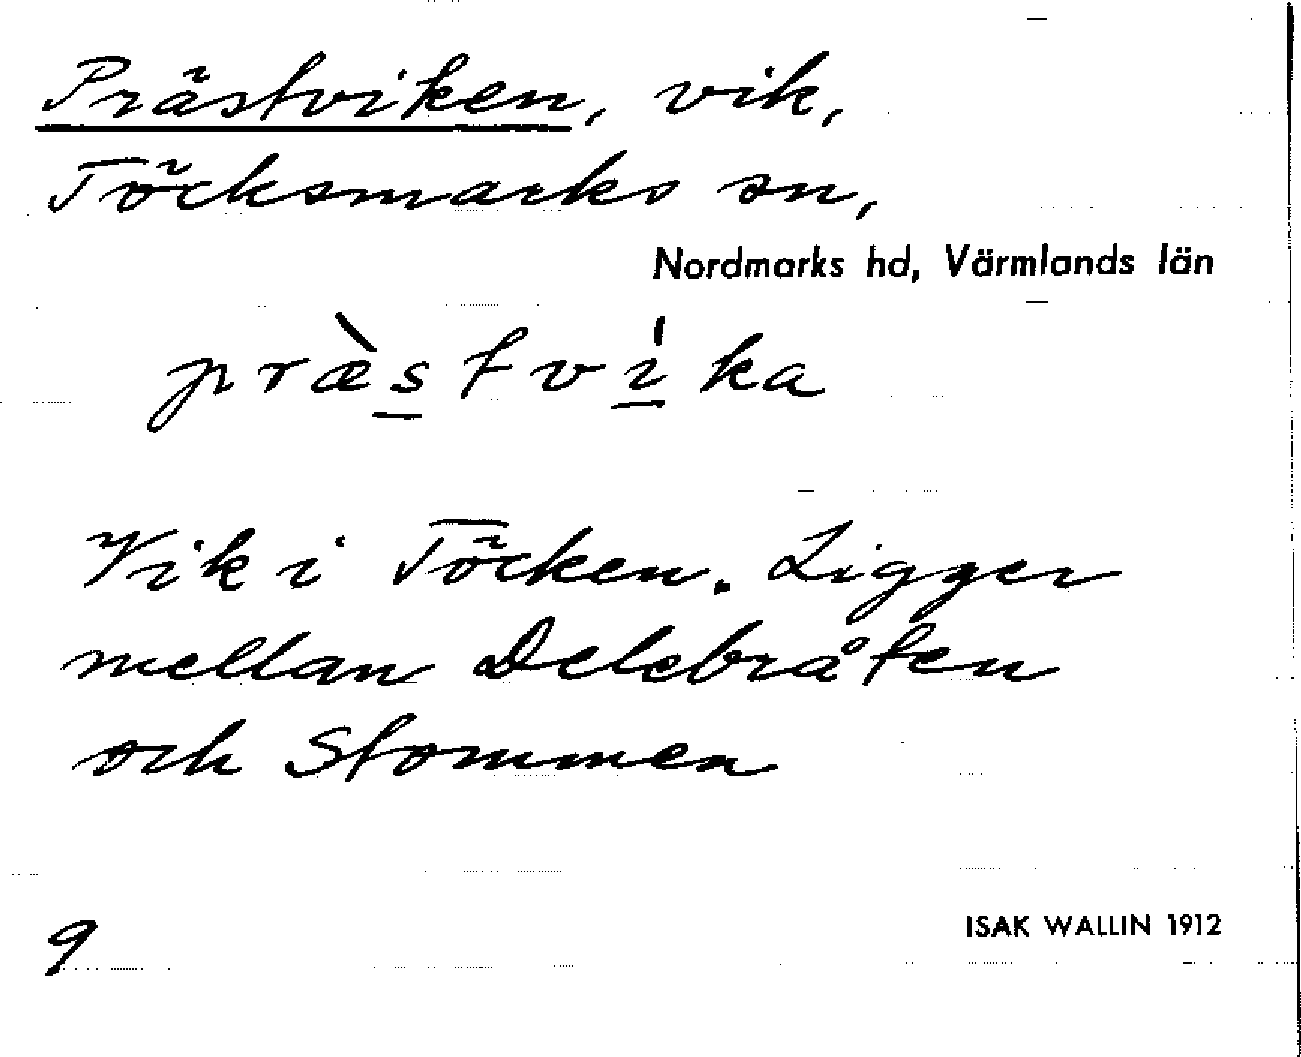 Prästviken, vik,
Töcksmarks sn,
Nordmarks hd, Värmlands län
præ̀s̲tvi̲̍ka
Vik i Töcken. Ligger
mellan Delebråten
och Stommen
9
ISAK WALLIN 1912